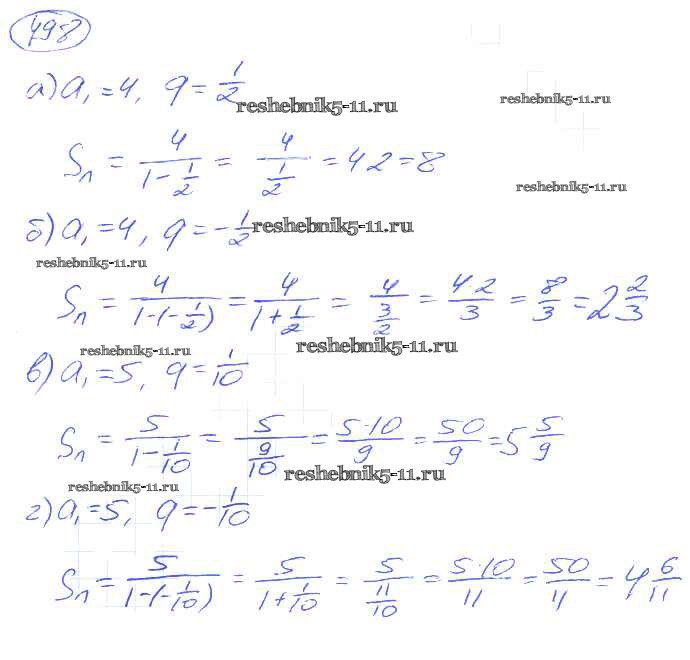 498
а) a₁ = 4, q = 1/2
reshebnik5-11.ru
reshebnik5-11.ru
Sₙ = 4/(1 - 1/2) = 4/(1/2) = 4·2 = 8
reshebnik5-11.ru
б) a₁ = 4, q = -1/2
reshebnik5-11.ru
reshebnik5-11.ru
Sₙ = 4/(1-(-1/2)) = 4/(1 + 1/2) = 4/(3/2) = 4·2/3 = 8/3 = 2 2/3
reshebnik5-11.ru
reshebnik5-11.ru
в) a₁ = 5, q = 1/10
Sₙ = 5/(1 - 1/10) = 5/(9/10) = 5·10/9 = 50/9 = 5 5/9
reshebnik5-11.ru
reshebnik5-11.ru
г) a₁ = 5, q = -1/10
Sₙ = 5/(1-(-1/10)) = 5/(1 + 1/10) = 5/(11/10) = 5·10/11 = 50/11 = 4 6/11